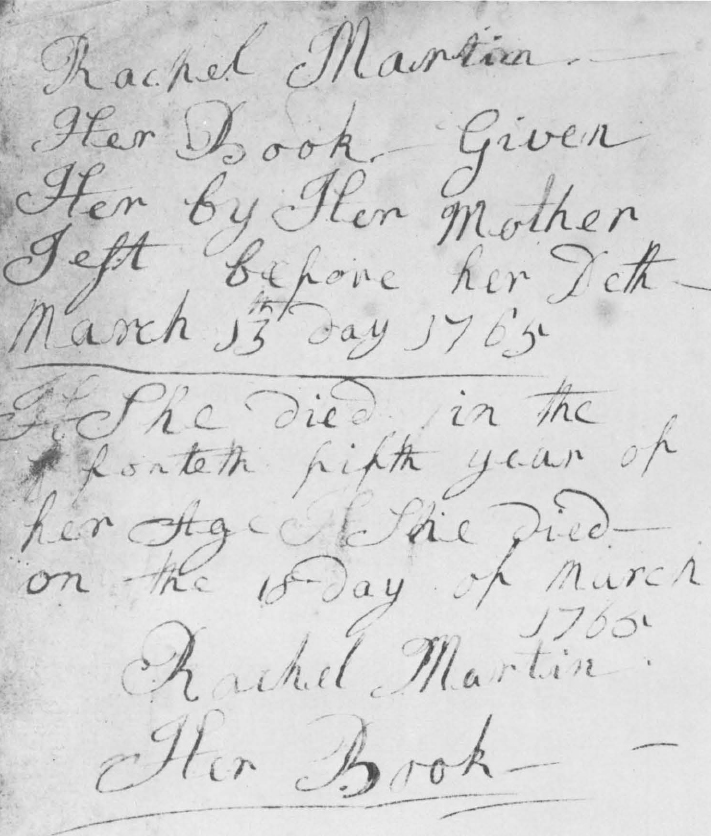 Rachel Martin.
Her Book Given
Her by Her Mother
Jest before her Deth
March 13th day 1765
She died in the
forteth fifth year of
her Age She died
on the 18 day of March
1765
Rachel Martin
Her Book